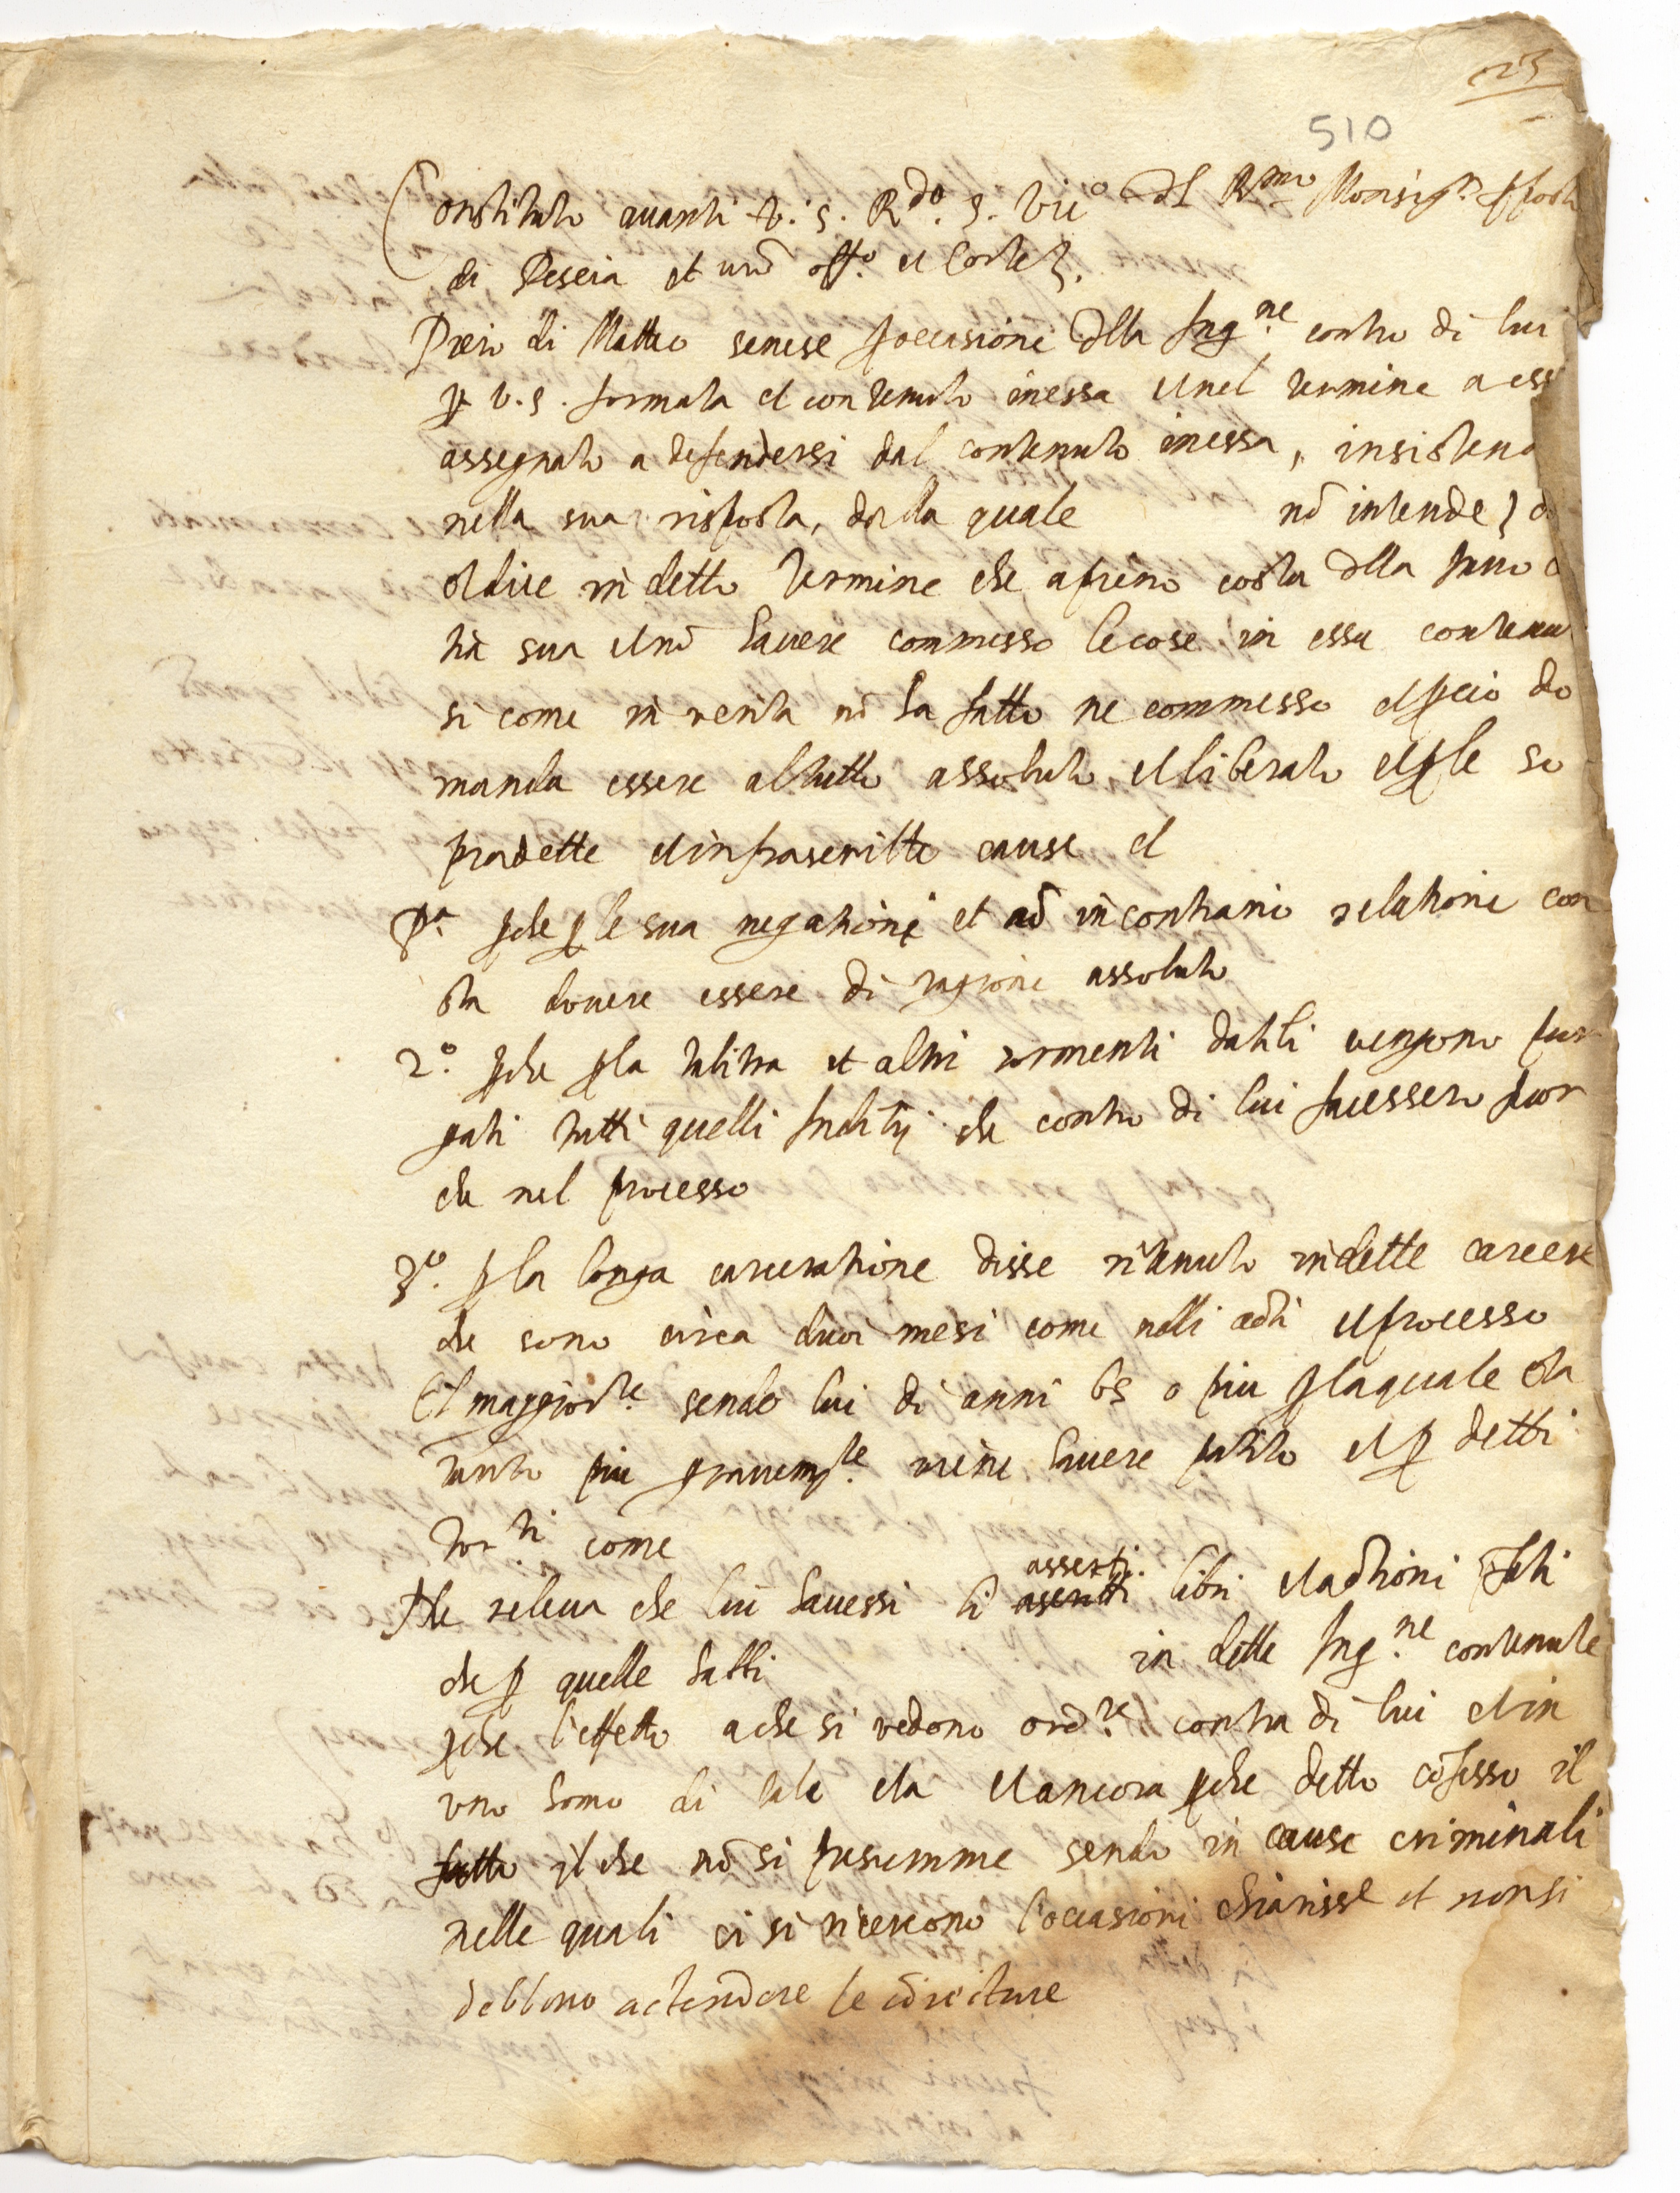 510
Constituto auanti V. S. R.do S. Vic.o del R.mo Monsig.r
di Pescia et sua off.o et Corte
Piero di Matteo senese occasione della Inq.ne contro di lui
p V. S. formata et contenuto inessa et nel termine a ess
assegnato a defendersi dal contenuto inessa, insistend
nella sua risposta, dalla quale nō intende
oltre in detto termine che apieno costa della
tà sua et nō hauere commesso le cose in essa contenu
si come in verità nō ha fatto ne commesso et pciò do
manda essere al tutto assoluto et liberato et p le so
pradette et infrascritte cause et
P.a pche p le sua negationi et nō in contrario relationi con
sta douere essere di ragione assoluto
2.o pche p la et altri tormenti datili vengono pur
gati tutti quelli Inditij che contro di lui facessero por
che nel processo
3.o p la longa carceratione disse ritenuto in dette carcere
che sono circa duoi mesi come nelli atti et processo
Et maggior.te sendo lui di anni 65 o piu p la quale età
tanto piu grauem.te viene hauere patito et p detti
tor.ti come
Ne releua che lui hauessi li asserti libri et actioni
che p quelle fatti in dette Inq.ne contenute
pche l'effetto a che si vedono ord.te contra di lui et in
vno homo di tale età et ancora pche detto cōfesso il
fatto il che nō si presumme sendo in cause criminali
nelle quali ci si ricercono l'occasioni chiarisse et non si
debbono actendere le cōiecture